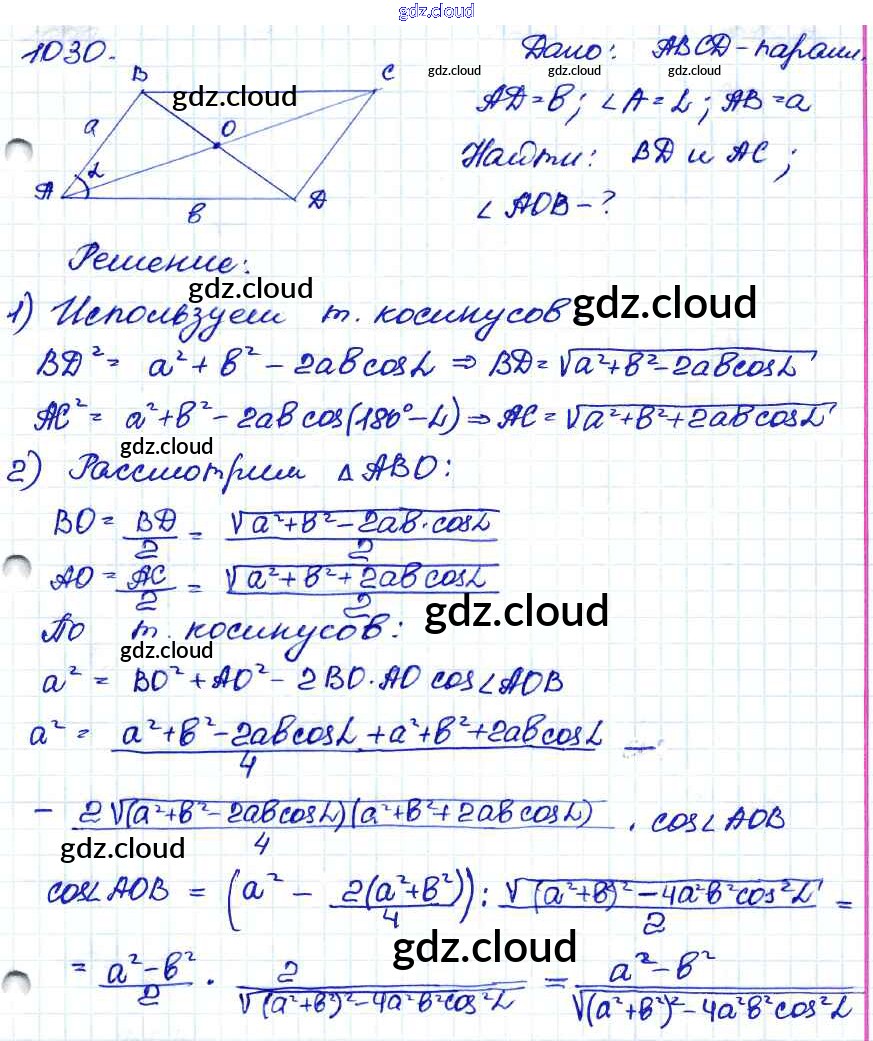 gdz.cloud
1030.
Дано: ABCD - парал.
gdz.cloud gdz.cloud gdz.cloud
B C
gdz.cloud
AD = в; ∠A = α; AB = a
a O
Найти: BD и AC;
A α в D
∠AOB - ?
Решение:
gdz.cloud
1) Используем т. косинусов
gdz.cloud
BD² = a² + в² - 2aв cosα ⇒ BD = √(a² + в² - 2aв cosα)
AC² = a² + в² - 2aв cos(180° - α) ⇒ AC = √(a² + в² + 2aв cosα)
gdz.cloud
2) Рассмотрим △ABO:
BO = BD/2 = √(a² + в² - 2aв·cosα)/2
AO = AC/2 = √(a² + в² + 2aв cosα)/2
gdz.cloud
По т. косинусов:
gdz.cloud
a² = BO² + AO² - 2BO·AO cos∠AOB
a² = (a² + в² - 2aв cosα + a² + в² + 2aв cosα)/4 -
- 2√((a² + в² - 2aв cosα)(a² + в² + 2aв cosα))/4 · cos∠AOB
gdz.cloud
cos∠AOB = (a² - 2(a² + в²)/4) : √((a² + в)² - 4a²в² cos²α)/2 =
gdz.cloud
= (a² - в²)/2 · 2/√((a² + в²)² - 4a²в² cos²α) = (a² - в²)/√((a² + в²)² - 4a²в² cos²α)